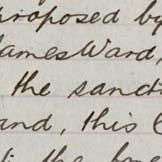 proposed by
James Ward,
the sanct
and, this